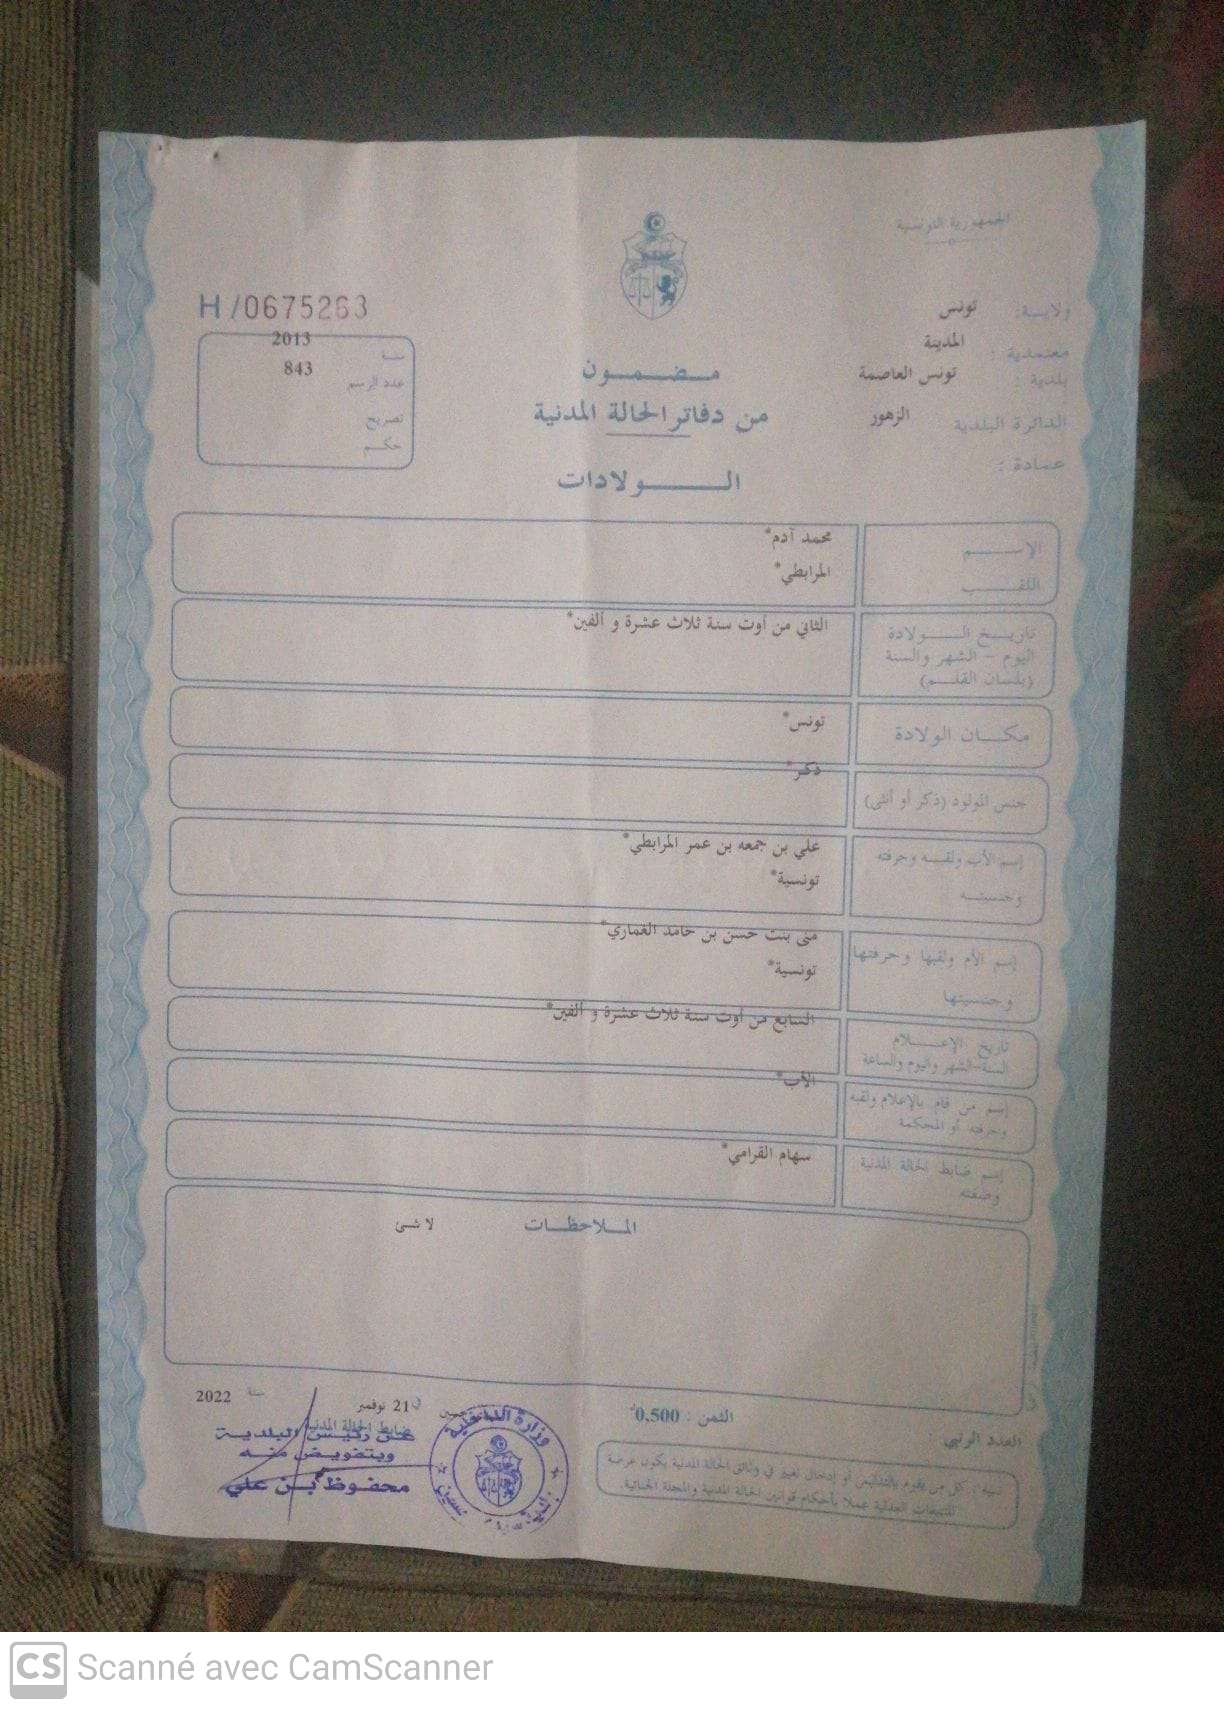 الجمهورية التونسية
H/0675263
ولايـــة: تونس
معتمدية : المدينة
بلدية : تونس العاصمة
الدائرة البلدية الزهور
عمادة :
سنة 2013
عدد الرسم 843
تصريح
حكـــم
مـــضـــمـــون
من دفاتر الحالة المدنية
الـــــــولادات
الإســـــم محمد آدم*
اللقـــــب المرابطي*
تاريـــخ الـــــولادة
اليوم - الشهر والسنة
(بلسان القلـــم)
الثاني من أوت سنة ثلاث عشرة و ألفين*
مكـــان الولادة تونس*
جنس المولود (ذكر أو أنثى) ذكر*
إسم الأب ولقبـــه وحرفته علي بن جمعه بن عمر المرابطي*
وجنسيتـــه تونسية*
إسم الأم ولقبها وحرفتها منى بنت حسن بن حامد الغماري*
وجنسيتها تونسية*
تاريخ الإعـــــلام
السنة-الشهر واليوم والساعة
السابع من أوت سنة ثلاث عشرة و ألفين*
إسم من قام بالإعلام ولقبه
وحرفته أو المحكمة
الأب*
إسم ضابط الحالة المدنية
وصفته
سهام القرامي*
الملاحظـــات لا شئ
في 21 نوفمبر سنة 2022
ضابط الحالة المدنية
عن رئيس البلدية
وبتفويض منه
محفوظ بن علي
وزارة الداخلية
الثمن : 0,500د
العدد الرتبي
تنبيه : كل من يقوم بالتدليس أو إدخال تغيير في وثائق الحالة المدنية يكون عرضة
للتتبعات العدلية عملا بأحكام قوانين الحالة المدنية والمجلة الجنائية.
CS Scanné avec CamScanner